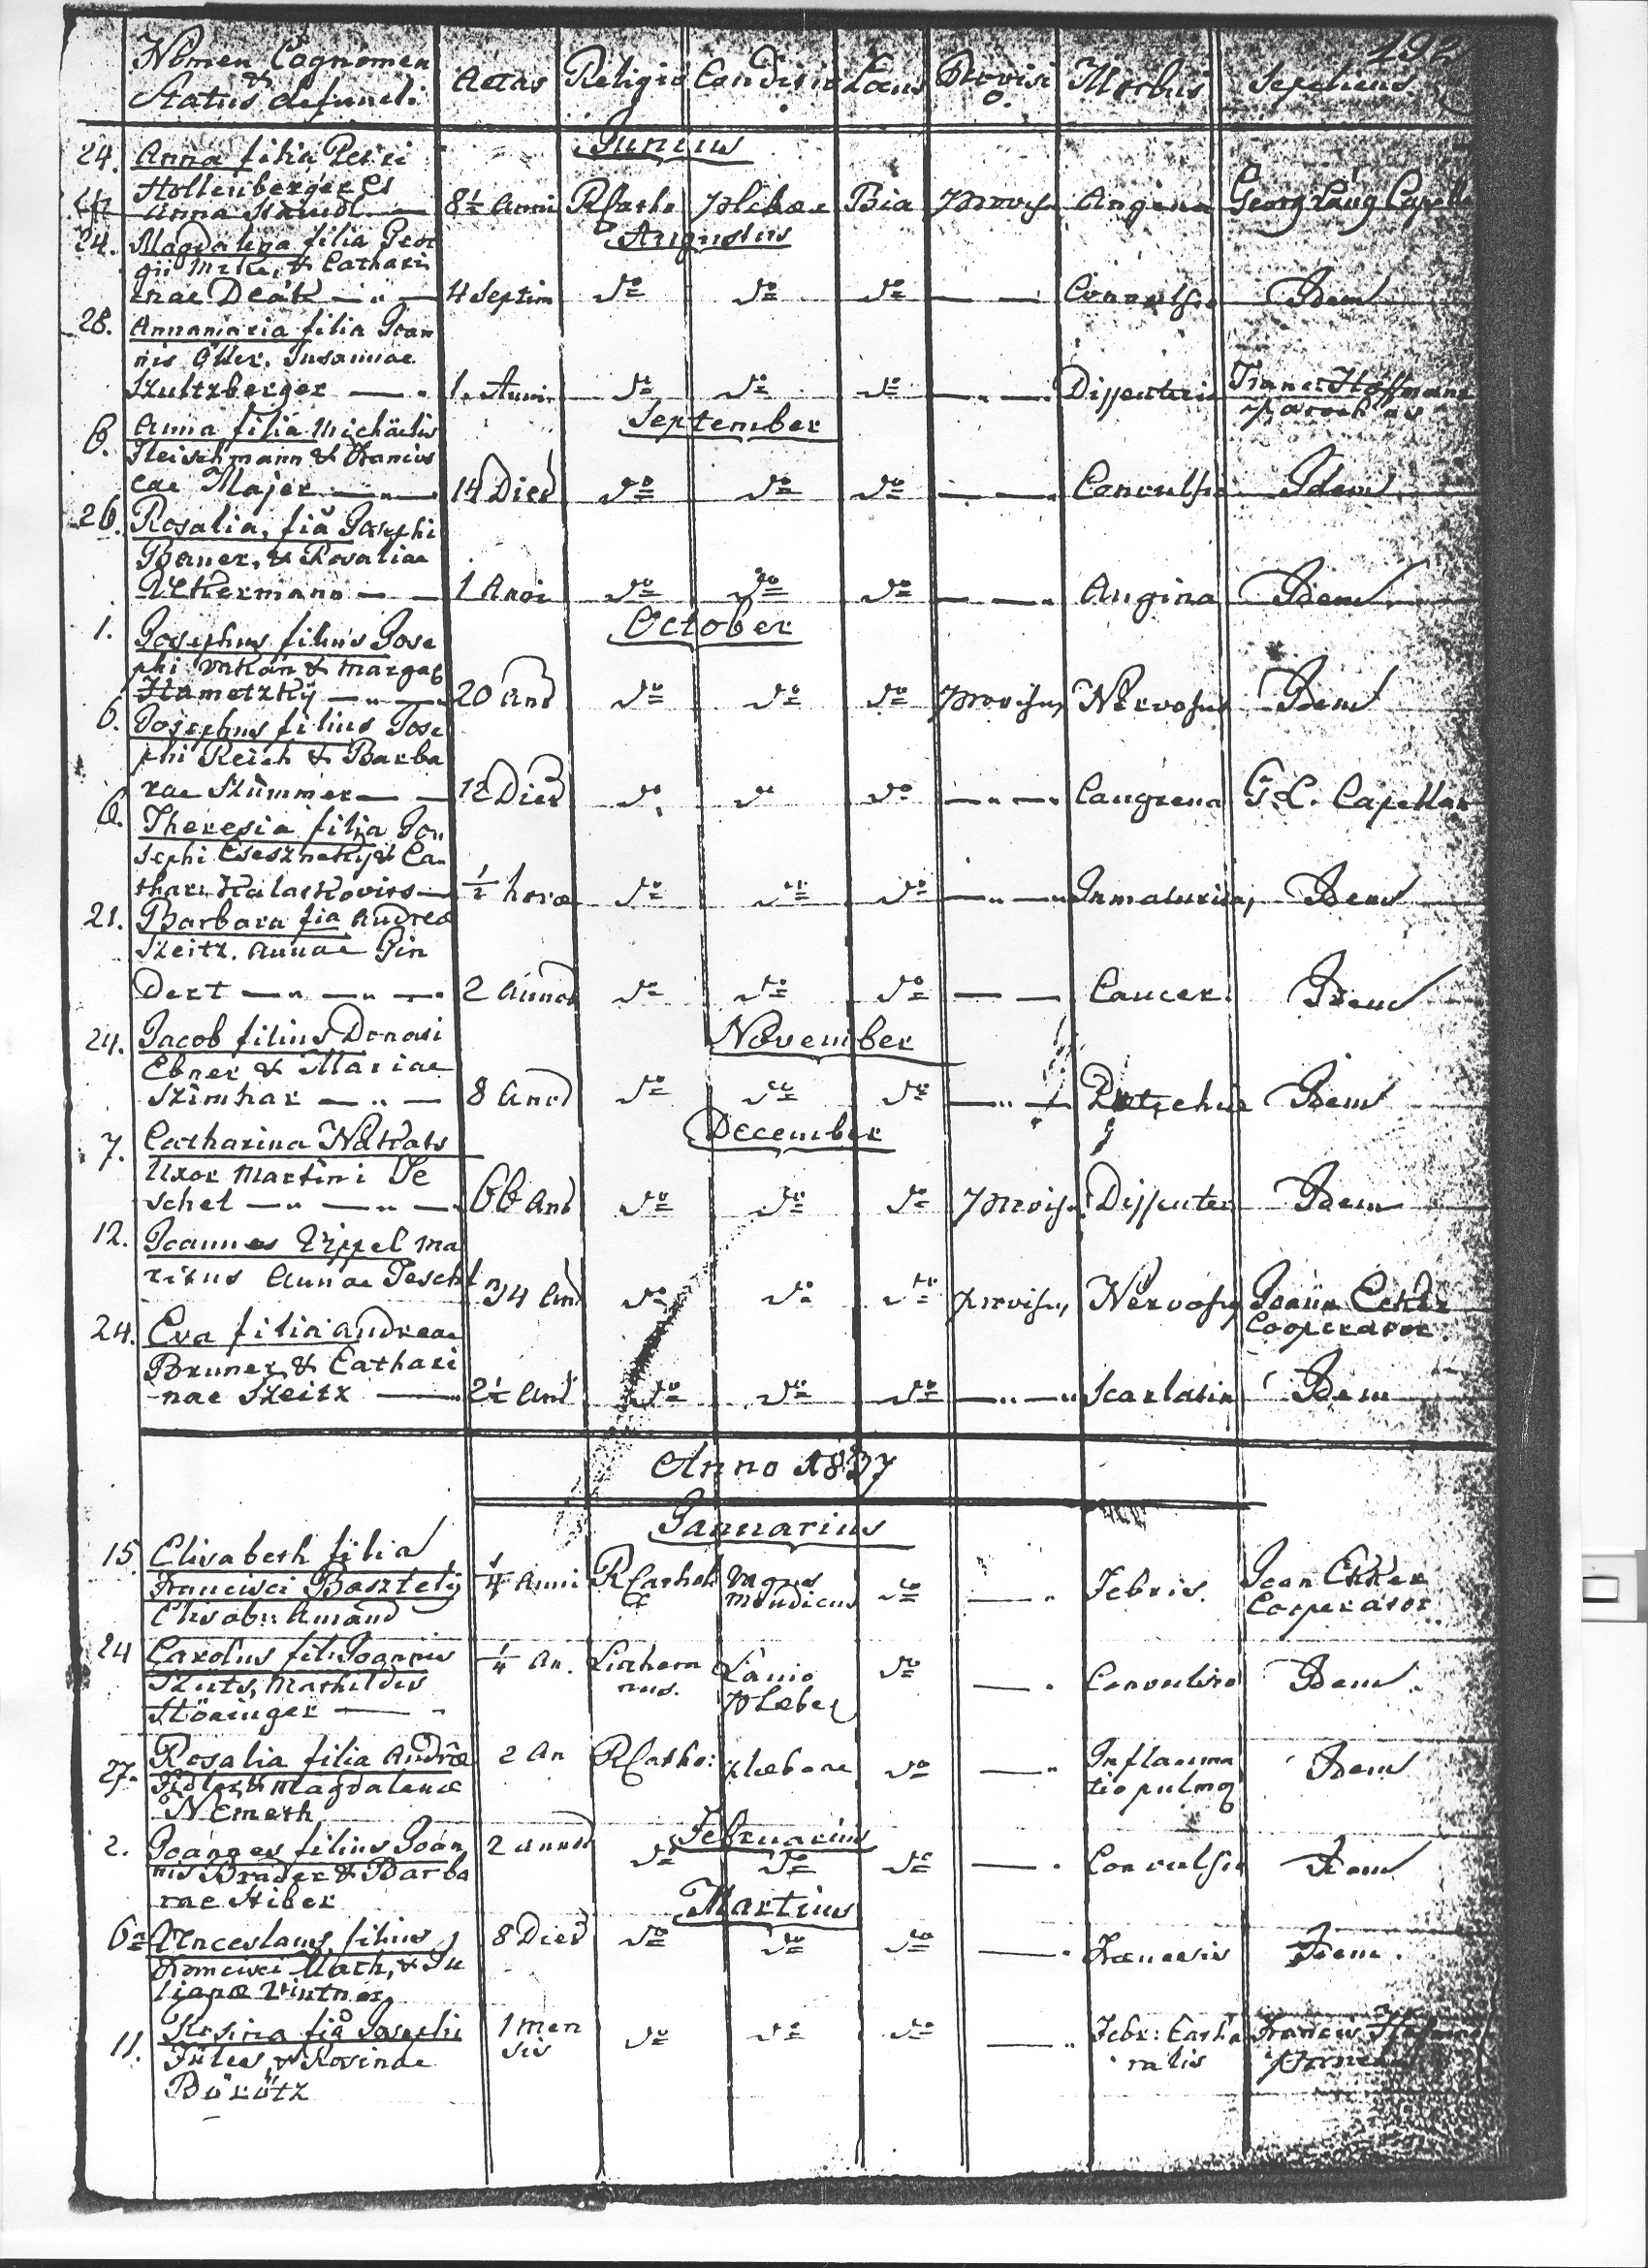 192
Nomen Cognomen & Status defuncti Aetas Religio Conditio Locus Provisio Morbus Sepeliens
Junius
24. Anna filia Petri
Hollenberger et
Anna Staindl 8½ Anni RCatho plebae Bia provisa Angina Georg Lang Capell
Augustus
24. Magdalena filia Geor
gii & Cathari
nae Deák 4 Septim do do do Convulsio Idem
28. Annamaria filia Joan
nis
Szultzberger 1. Anni do do do Dissenteri Franc: Hoffmann
parochus
September
6. Anna filia Michaelis
Fleischmann & Francis
cae Majer 14 Dies do do do Convulsio Idem
26. Rosalia, fia Josephi
Bauer, & Rosaliae
Ackermann 1 Anni do do do Angina Idem
October
1. Josephus filius Jose
phi & Margar
Hametzky 20 Ann do do do provisus Nervosus Idem
6. Josephus filius Jose
phi Reich & Barba
rae Szümmer 12 Dies do do do Cangrena G. L. Capellan
6. Theresia filia Jo
sephi Cseszneky & Ca
thar: Kalaskovits ½ hora do do do Inmaturita, Idem
21. Barbara fia Andreae
Szeitz. Annae Gin
dert 2 Annos do do do Cancer. Idem
November
24. Jacob filius Donati
Ebner & Mariae
Szimhar 8 Ann do do do Idem
December
7. Catharina
Uxor Martini Te
schel 66 Ann do do do provisa Dissenter Idem
12. Joannes Zippel ma
ritus Annae Teschl 34 Ann do do do provisus, Nervosus Joann Ecker
Cooperator
24. Eva filia Andreae
Bruner & Cathari
nae Szeitz 2½ Ann do do do Scarlatin Idem
Anno 1837
Januarius
15 Elisabeth filia
Francisci Basztety
Elisab: Amand ¼ Anni RCathol Vagus
mendicus do Febris. Joan Ekker
Cooperator
24 Carolus fil: Joannis
Szuts, Mathildis
Störinger ¼ An. Luthera
nus. Lanio
plebe do Convulsio Idem
27. Rosalia filia Andreae
Fidler & Magdalenae
Nemeth 2 An RCatho: plebeae do Inflamma
tio pulmo Idem
Februarius
2. Joannes filius Joan
nis Brader & Barba
rae Hiber 2 annos do do do Convulsio Idem
Martius
6 Venceslaus, filius
Francisci Mach, & Ju
lianae Vintner 8 Dies do do do Idem.
11. Rosina fia Josephi
Fülles, & Rosinae
Börötz 1 men
sis do do do Febr: Catha
ralis Francis Hoffmann